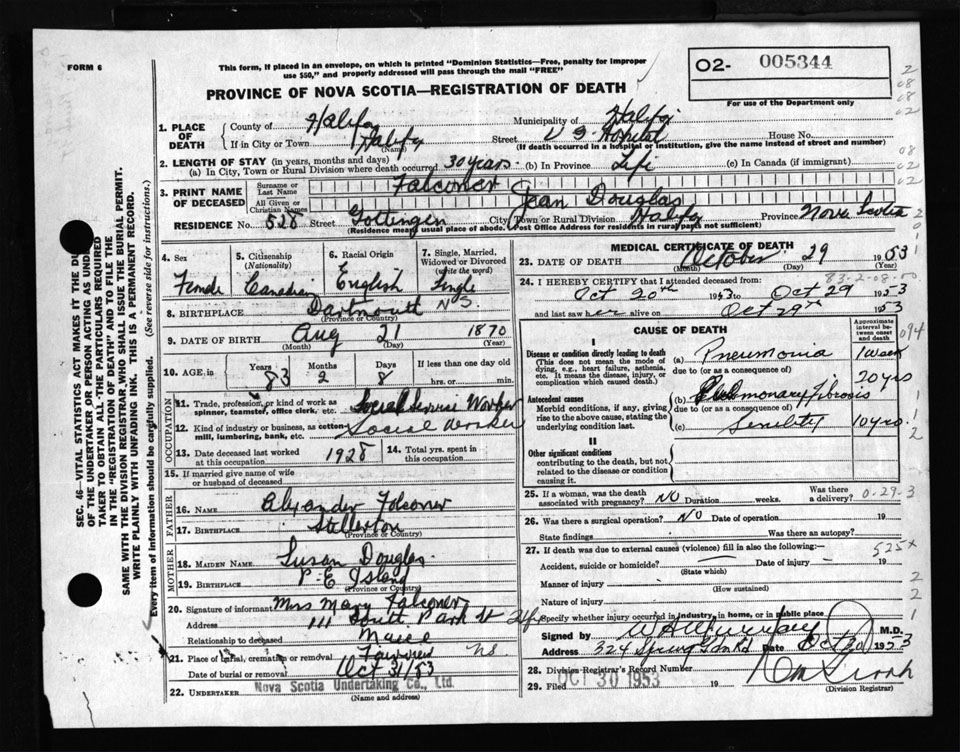 FORM 6
This form, if placed in an envelope, on which is printed "Dominion Statistics—Free, penalty for improper
use $50," and properly addressed will pass through the mail "FREE"
O2- 005344
For use of the Department only
PROVINCE OF NOVA SCOTIA—REGISTRATION OF DEATH
1. PLACE OF DEATH
County of Halifax Municipality of Halifax
If in City or Town Halifax (Name) Street V G Hospital House No.
(If death occurred in a hospital or institution, give the name instead of street and number)
2. LENGTH OF STAY (in years, months and days)
(a) In City, Town or Rural Division where death occurred 30 years. (b) In Province Life (c) In Canada (if immigrant)
3. PRINT NAME OF DECEASED
Surname or Last Name Falconer
All Given or Christian Names Jean Douglas
RESIDENCE No. 528 Street Gottingen City, Town or Rural Division Halifax Province Nova Scotia
(Residence means usual place of abode. Post Office Address for residents in rural parts not sufficient)
4. Sex
Female
5. Citizenship
(Nationality)
Canadian
6. Racial Origin
English
7. Single, Married,
Widowed or Divorced
(Write the word)
Single
8. BIRTHPLACE Dartmouth N S.
(Province or Country)
9. DATE OF BIRTH Aug 21 1870
(Month) (Day) (Year)
10. AGE in Years 83 Months 2 Days 8 If less than one day old
hrs. or min.
OCCUPATION
11. Trade, profession, or kind of work as
spinner, teamster, office clerk, etc. Social Service Worker
12. Kind of industry or business, as cotton
mill, lumbering, bank, etc. Social Worker
13. Date deceased last worked
at this occupation 1928
14. Total yrs. spent in
this occupation
15. If married give name of wife
or husband of deceased
FATHER
16. NAME Alexander Falconer
17. BIRTHPLACE Stellarton
(Province or Country)
MOTHER
18. MAIDEN NAME Susan Douglas
19. BIRTHPLACE P. E Island
(Province or Country)
20. Signature of informant Miss Mary Falconer
Address 111 South Park St Hfx
Relationship to deceased Niece
21. Place of burial, cremation or removal Fairview NS
Date of burial or removal Oct 31/53
22. UNDERTAKER Nova Scotia Undertaking Co., Ltd.
(Name and address)
MEDICAL CERTIFICATE OF DEATH
23. DATE OF DEATH October 29 1953
(Month) (Day) (Year)
83-2-08-00
24. I HEREBY CERTIFY that I attended deceased from:
Oct 20th 1953 to Oct 29 1953
and last saw her alive on Oct 29 1953
CAUSE OF DEATH
Approximate
interval between
onset
and death
094
I
Disease or condition directly leading to death
(This does not mean the mode of
dying, e.g., heart failure, asthenia,
etc. It means the disease, injury, or
complication which caused death.)
(a) Pneumonia 1 week
due to (or as a consequence of)
Antecedent causes
Morbid conditions, if any, giving
rise to the above cause, stating the
underlying condition last.
(b) Pulmonary Fibrosis 20 yrs
due to (or as a consequence of)
(c) Senility 10 yrs.
II
Other significant conditions
contributing to the death, but not
related to the disease or condition
causing it.
25. If a woman, was the death
associated with pregnancy? NO Duration weeks. Was there
a delivery? 0-29-3
26. Was there a surgical operation? NO Date of operation 19
State findings Was there an autopsy?
27. If death was due to external causes (violence) fill in also the following:— 525x
Accident, suicide or homicide? Date of injury 19
(State which)
Manner of injury
(How sustained)
Nature of injury
Specify whether injury occurred in industry, in home, or in public place
Signed by W A Murray M.D.
Address 324 Spring Gdn Rd Date Oct 30 1953
28. Division Registrar's Record Number
29. Filed OCT 30 1953 19
(Division Registrar)
SEC. 46—VITAL STATISTICS ACT MAKES IT THE DU
OF THE UNDERTAKER OR PERSON ACTING AS UNDE
TAKER TO OBTAIN ALL THE PARTICULARS REQUIRED
IN THE "REGISTRATION OF DEATH" AND TO FILE THE
SAME WITH THE DIVISION REGISTRAR WHO SHALL ISSUE THE BURIAL PERMIT.
WRITE PLAINLY WITH UNFADING INK. THIS IS A PERMANENT RECORD.
Every item of information should be carefully supplied. (See reverse side for instructions.)